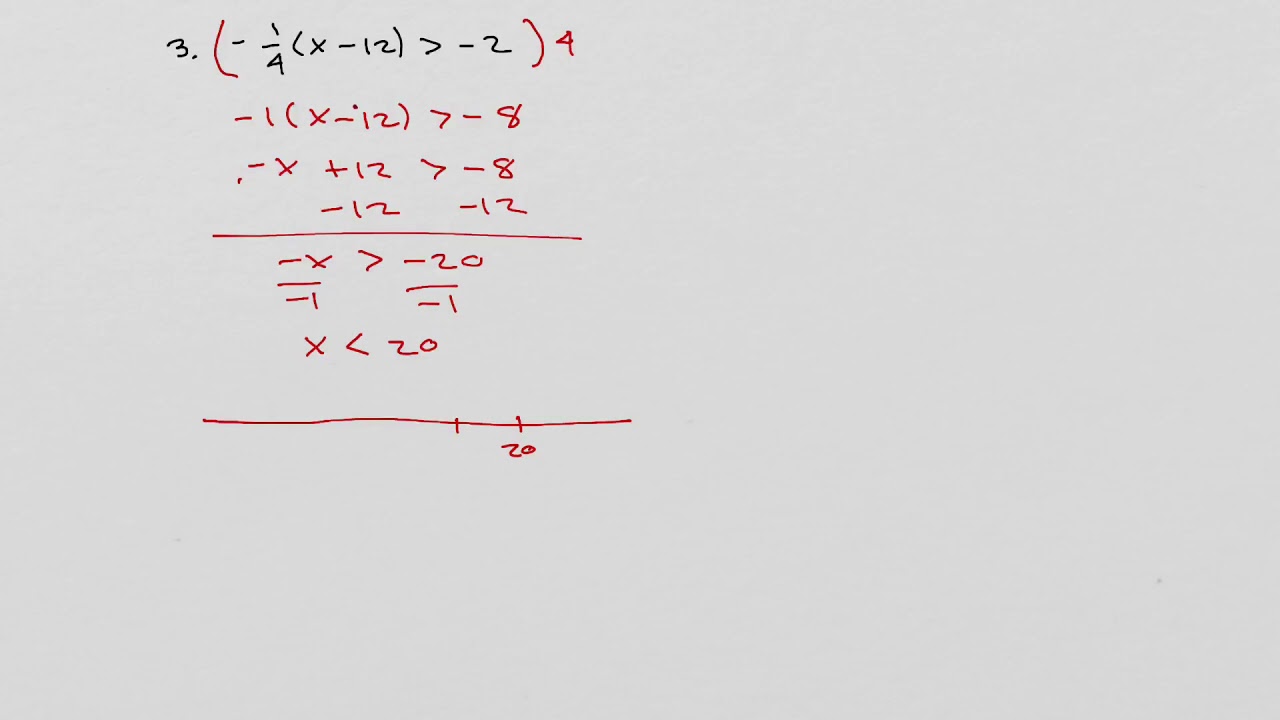 3. (-1/4(x-12) > -2)4
-1(x-12) > -8
-x +12 > -8
-12 -12
-x > -20
-1 -1
x < 20
20